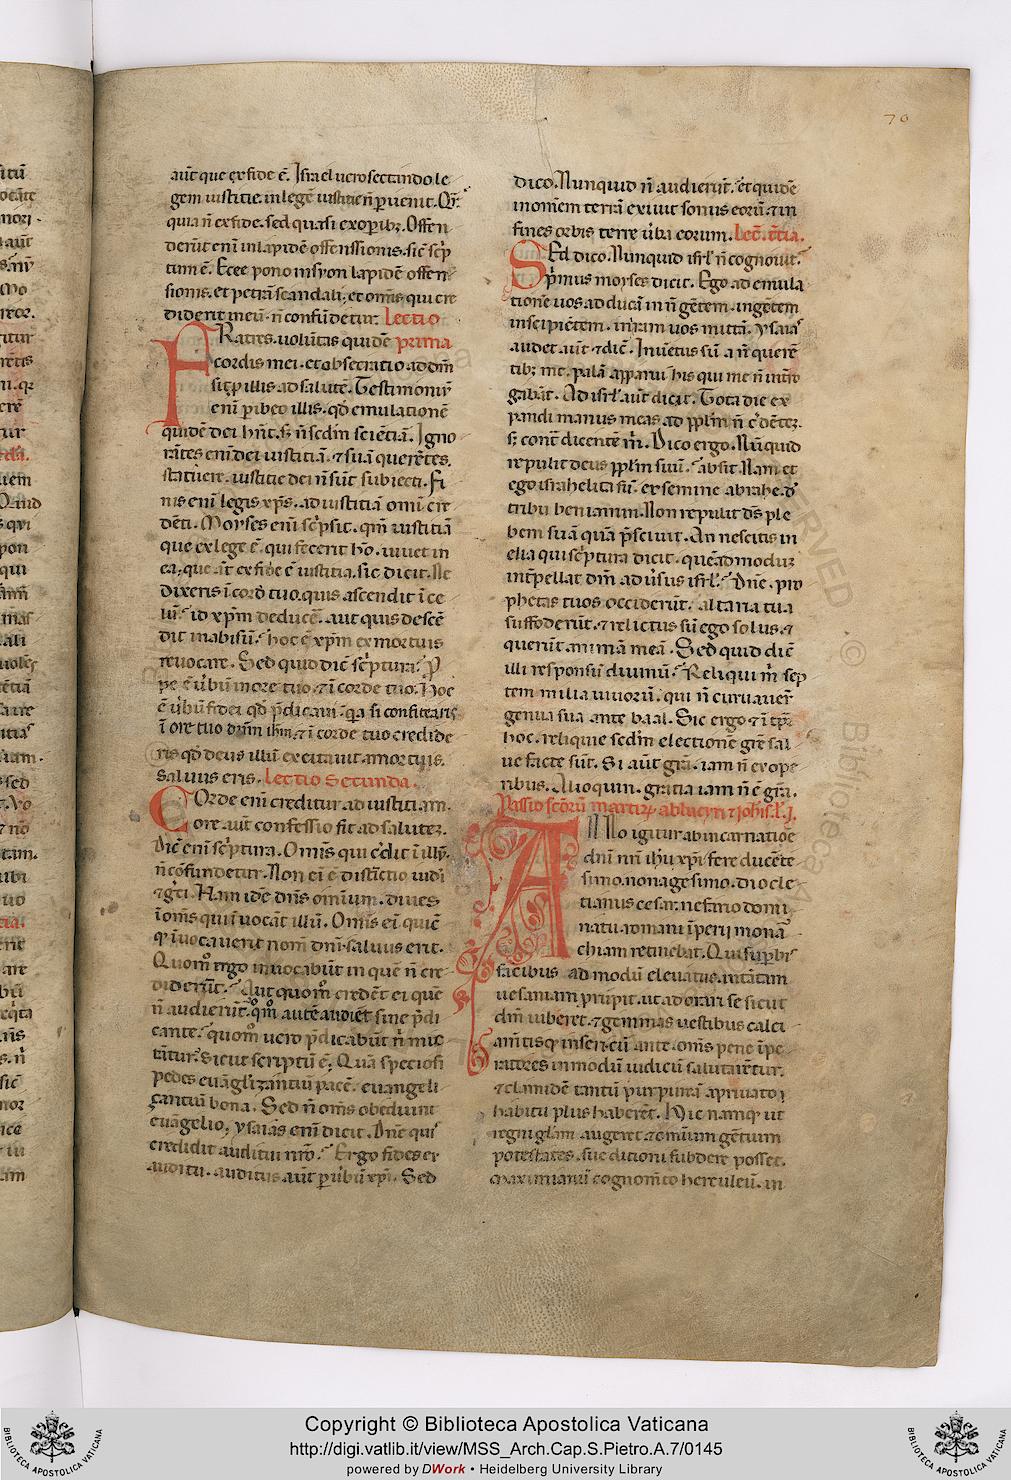 70
aut̄ que ex fide ē. Israel uero sectando le
gem iustitie. in legē iustitie n̄ ꝑuenit. Qr̄.
quia n̄ ex fide. sed quasi ex oꝑibꝫ. Offen
derūt enī in lapidē offenssionis. sic̄ scͥp
tum ē. Ecce pono in syon lapidē offen
sionis. et petrā scandali. et om̄s qui cre
diderit in eū. n̄ confūdetur. Lectio
FRatres. uolūtas quidē prima
cordis mei. et obsecratio ad dm̄
fit ꝓ illis. ad salutē. Testimoniū
enī ꝑibeo illis. qd̄ emulationē
quidē dei hn̄t. sꝫ n̄ scdm̄ sciētiā. Igno
rātes enī dei iustitiā. ⁊ suā querētes.
statuere. iustitie dei n̄ sūt subiecti. Fi
nis enī legis xp̄s. ad iustitiā omī cre
dēti. Moyses enī scͥpsit. qm̄ iustitiā
que ex lege ē. qui fecerit hō. uiuet in
ea. que aūt ex fide ē iustitia. sic dicit. Ne
dixeris ī cord tuo. quis ascendit ī ce
lū. id xp̄m deducē. aut quis descē
dit in abisū. hoc ē xp̄m ex mortuis
reuocare. Sed quid dic̄ scͥptura. P
pe ē ūbū in ore tuo. ⁊ ī corde tuo. Hoc
ē ūbū fidei qd̄ p̄dicam̄. qa si confitearis
ī ore tuo dn̄m ihm̄. ⁊ ī corde tuo credide
ris qd̄ deus illū excitauit a mortuis.
saluus eris. Lectio secunda.
COrde enī creditur ad iustitiam.
Ore aūt confessio fit ad salutē.
Dic̄ enī scͥptura. Omīs qui cͥdit ī illū.
n̄ cōfundetur. Non eī ē distīctio iudī
⁊ gͥci. Nam idē dn̄s omīum. diues
ī om̄s qui īuocāt illū. Omīs eī quic̄
qͥ īuocauerit nom̄ dnī. saluus erit.
Quom̊ ergo inuocabūt in quē n̄ cre
diderūt. Aut quom̊ credēt ei quē
n̄ audierūt. qm̊ autē audiēt sine p̄di
cante. quom̊ uero p̄dicabūt nͥ mic
tātur. Sicut scriptū ē. Quā speciosi
pedes euāglizantiū pacē. euangeli
çantiū bona. Sed n̄ om̄s obediunt
euāgelio. ysaias enī dicit. Dn̄e quiͥ
credidit auditui nr̄o. Ergo fides ex
auditu. auditus aūt ꝑ ūbū xp̄i. Sed
dico. Nunquid n̄ audierūt. et quidē
in omēm terrā exiuit sonus eorū. ⁊ in
fines orbis terre ūba eorum. Lec̄. t̄tia.
SEd dico. Nunquid isrl̄ n̄ cognouit.
Pͥmus moyses dicit. Ego ad emula
tionē uos adducā in n̄ gētem. in gētem
insipiētem. in iram uos mittā. ysaias
audet aūt ⁊ dic̄. Inuētus sū a n̄ querē
tibꝫ me. palā apparui his qui me n̄ int̄ro
gabāt. Ad isrl̄ aūt dicit. Tota die ex
pandi manus meas ad pplm̄ n̄ cͥdētē.
sꝫ cont̄dicentē m̄. Dico ergo. Nūquid
repulit deus pplm̄ suū. absit. Nam et
ego israhelita sū. ex semine abrahe. de
tribu beniamin. Non repulit dn̄s ple
bem suā quā p̄sciuit. An nescitis in
elia qui scͥptura dicit. queādmodū
int̄pellat dm̄ ad ūsus isrl̄. Dn̄e. pro
phetas tuos occiderūt. altaria tua
suffoderūt. ⁊ relictus sū ego solus. ⁊
querūt animā meā. Sed quid dic̄
illi responsū diuinū. Reliqui m̄ sep
tem milia uirorū. qui n̄ curuauer̄
genua sua ante baal. Sic ergo ⁊ ī tp̄r̄
hoc. reliquie scdm̄ electionē gr̄e sal
ue facte sūt. Si aūt gr̄a. iam n̄ ex ope
ribus. Alioquin. gratia iam n̄ ē gr̄a.
Passio sc̄orū martirꝝ abbacyri ⁊ ioh̄is. l̄. j.
ANno igitur ab incarnatiōe
dnī nrī ih̄u xp̄i fere ducēte
simo. nonagesimo. diocle
tianus cesar. nefario domi
natu. romani īperij monar
chiam retinebat. Qui suꝑbis
fascibus admodū eleuatus. in tātam
uesaniam prūpit. ut adorari se sicut
dm̄ iuberet. ⁊ gemmas uestibus calci
am̄tisqꝫ inseri. cū ante om̄s pene īpe
ratores in modū iudicū salutarētur.
⁊ clamidē tantū purpurā a priuato
habitu plus haberēt. Hic namqꝫ ut
regni glām augeret ⁊ omīum gētium
potestates. sue dictioni subdere posset.
Maximianū cognom̄to herculeū. in
Copyright © Biblioteca Apostolica Vaticana
http://digi.vatlib.it/view/MSS_Arch.Cap.S.Pietro.A.7/0145
powered by DWork • Heidelberg University Library